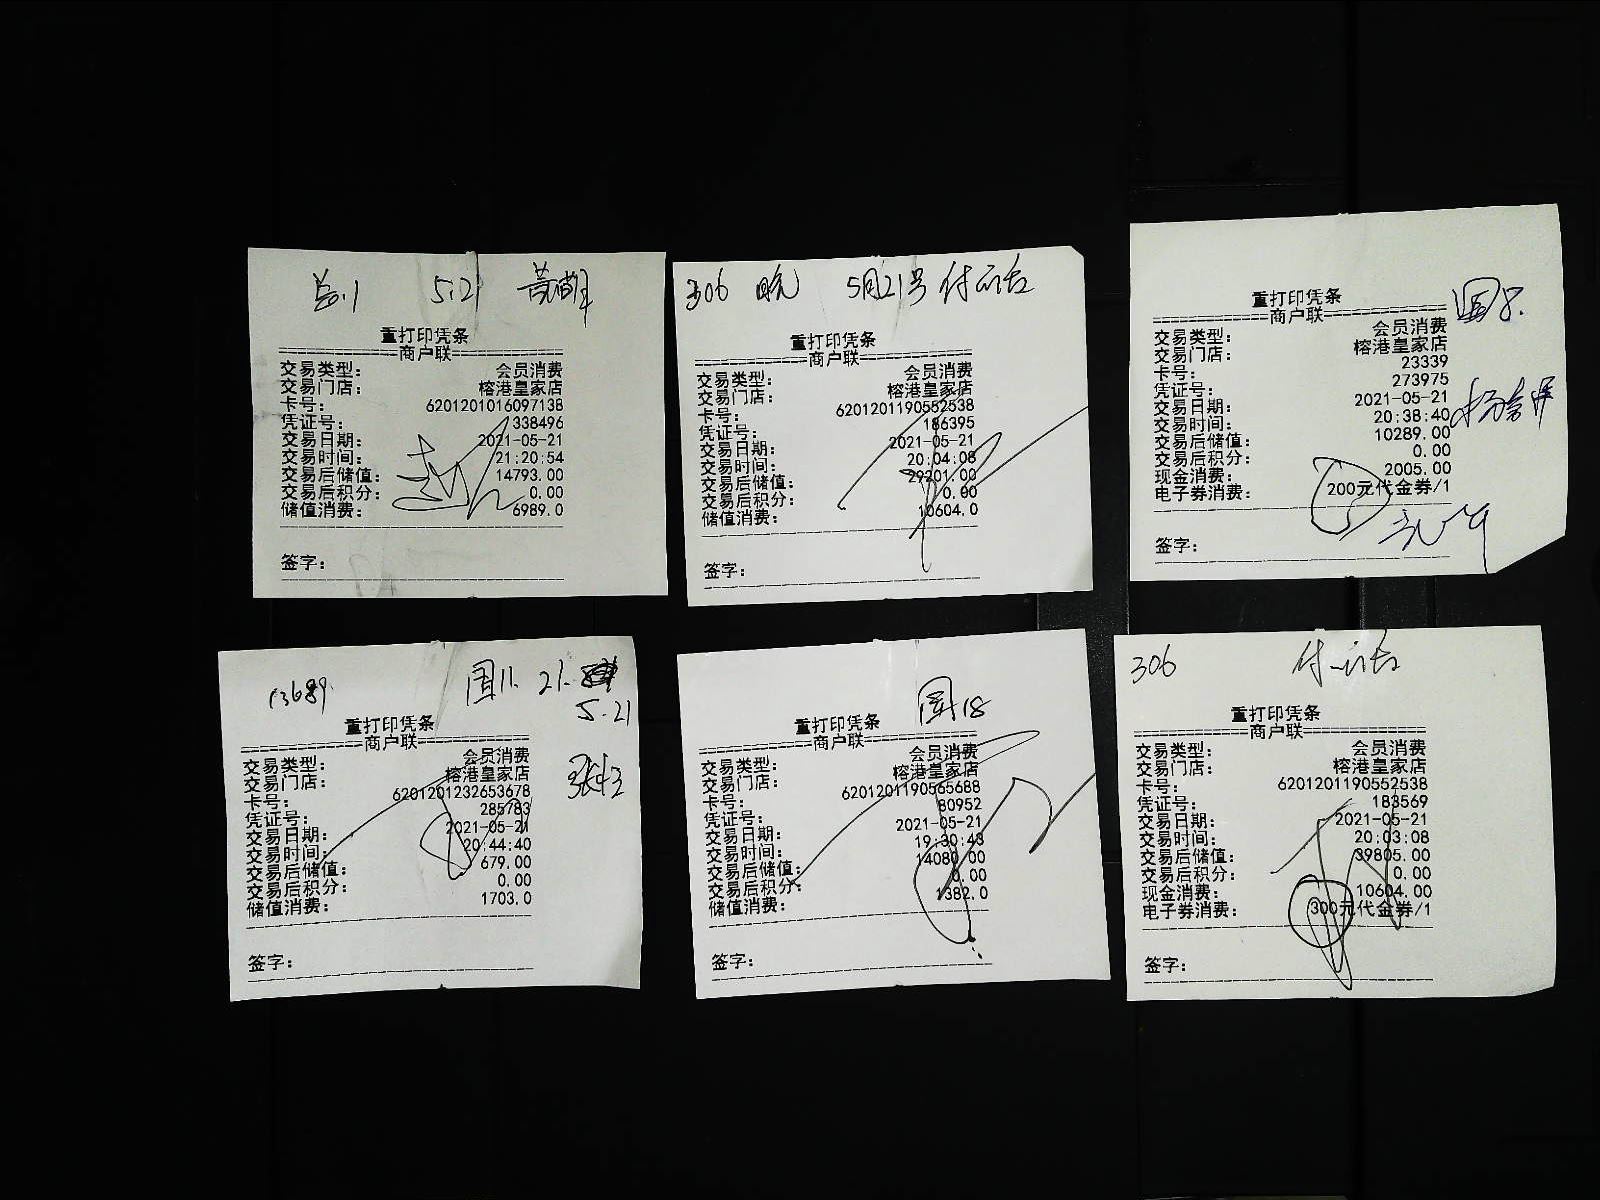 5.21
重打印凭条
商户联
交易类型： 会员消费
交易门店： 榕港皇家店
卡号： 6201201016097138
凭证号： 338496
交易日期： 2021-05-21
交易时间： 21:20:54
交易后储值： 14793.00
交易后积分： 0.00
储值消费： 6989.0
签字：
306 晚 5月21号
重打印凭条
商户联
交易类型： 会员消费
交易门店： 榕港皇家店
卡号： 6201201190552538
凭证号： 186395
交易日期： 2021-05-21
交易时间： 20:04:08
交易后储值： 29201.00
交易后积分： 0.00
储值消费： 10604.0
签字：
国8.
重打印凭条
商户联
交易类型： 会员消费
交易门店： 榕港皇家店
卡号： 23339
凭证号： 273975
交易日期： 2021-05-21
交易时间： 20:38:40
交易后储值： 10289.00
交易后积分： 0.00
现金消费： 2005.00
电子券消费： 200元代金券/1
签字：
13689 国11. 21.
5.21
重打印凭条
商户联
交易类型： 会员消费
交易门店： 榕港皇家店
卡号： 6201201232653678
凭证号： 285783
交易日期： 2021-05-21
交易时间： 20:44:40
交易后储值： 679.00
交易后积分： 0.00
储值消费： 1703.0
签字：
国18
重打印凭条
商户联
交易类型： 会员消费
交易门店： 榕港皇家店
卡号： 6201201190565688
凭证号： 80952
交易日期： 2021-05-21
交易时间： 19:30:43
交易后储值： 14080.00
交易后积分： 0.00
储值消费： 1382.0
签字：
306
重打印凭条
商户联
交易类型： 会员消费
交易门店： 榕港皇家店
卡号： 6201201190552538
凭证号： 183569
交易日期： 2021-05-21
交易时间： 20:03:08
交易后储值： 39805.00
交易后积分： 0.00
现金消费： 10604.00
电子券消费： 300元代金券/1
签字：